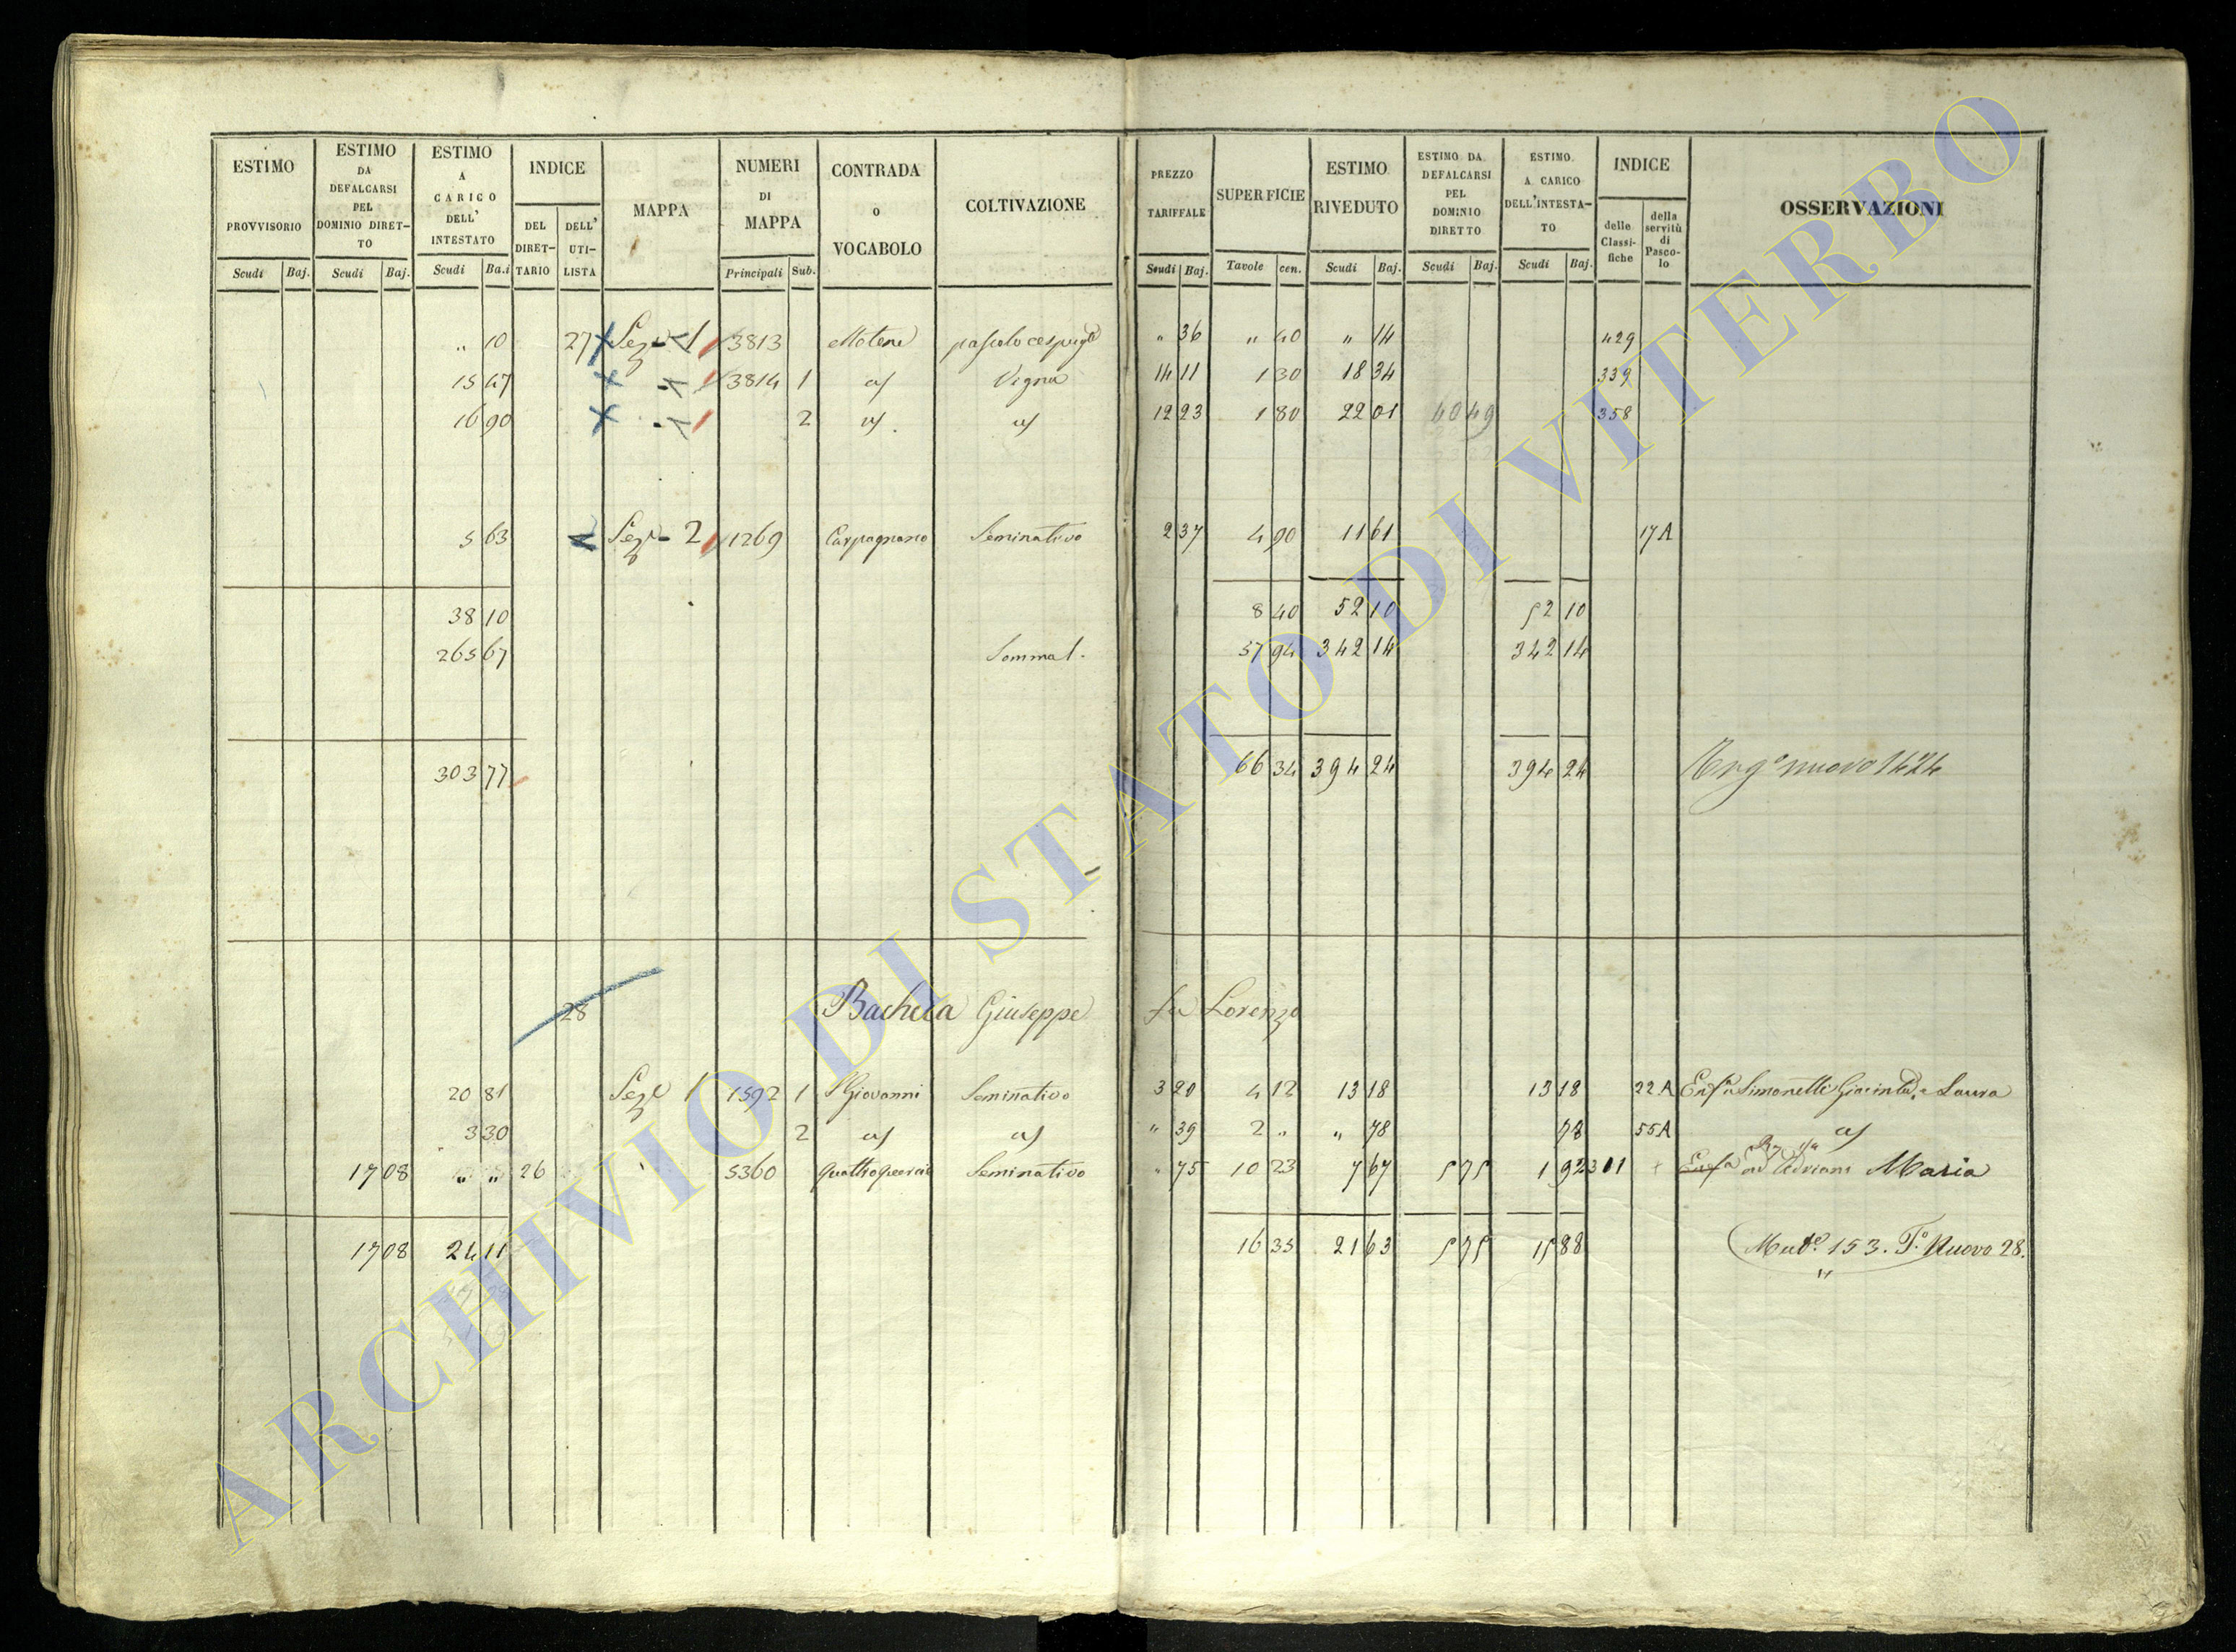 ESTIMO PROVVISORIO Scudi Baj.
ESTIMO DA DEFALCARSI PEL DOMINIO DIRET-TO Scudi Baj.
ESTIMO A CARICO DELL' INTESTATO Scudi Ba.i
INDICE DEL DIRET-TARIO DELL' UTI-LISTA
MAPPA
NUMERI DI MAPPA Principali Sub.
CONTRADA o VOCABOLO
COLTIVAZIONE
PREZZO TARIFFALE Scudi Baj.
SUPERFICIE Tavole cen.
ESTIMO RIVEDUTO Scudi Baj.
ESTIMO DA DEFALCARSI PEL DOMINIO DIRETTO Scudi Baj.
ESTIMO A CARICO DELL'INTESTA-TO Scudi Baj.
INDICE delle Classi-fiche della servitù di Pasco-lo
OSSERVAZIONI
" 10 27 Sez.e 1 3813 " 36 " 40 " 14 429
15 47 1 3814 1 Vigna 14 11 1 30 18 34 339
16 90 1 2 12 23 1 80 22 01 40 49 358
5 63 Sez.e 2 1269 Carpagnano Seminativo 2 37 4 90 11 61 17 A
38 10 8 40 52 10 52 10
265 67 Somma 1. 57 94 342 14 342 14
303 77 66 34 394 24 394 24 nuovo 1424
28 Bacheca Giuseppe fu Lorenzo
20 81 Sez.e 1 1592 1 S Giovanni Seminativo 3 20 4 12 13 18 13 18 22 A Enf.a Simonetti Giacinta e Laura
3 30 2 " 39 2 " " 78 78 55 A
17 08 " " 26 5360 Quattroquercie Seminativo " 75 10 23 7 67 5 75 1 92 301 Enf.a ad Adriani Maria
17 08 24 11 16 35 21 63 5 75 15 88 Mut.e 153. T.o Nuovo 28.
ARCHIVIO DI STATO DI VITERBO